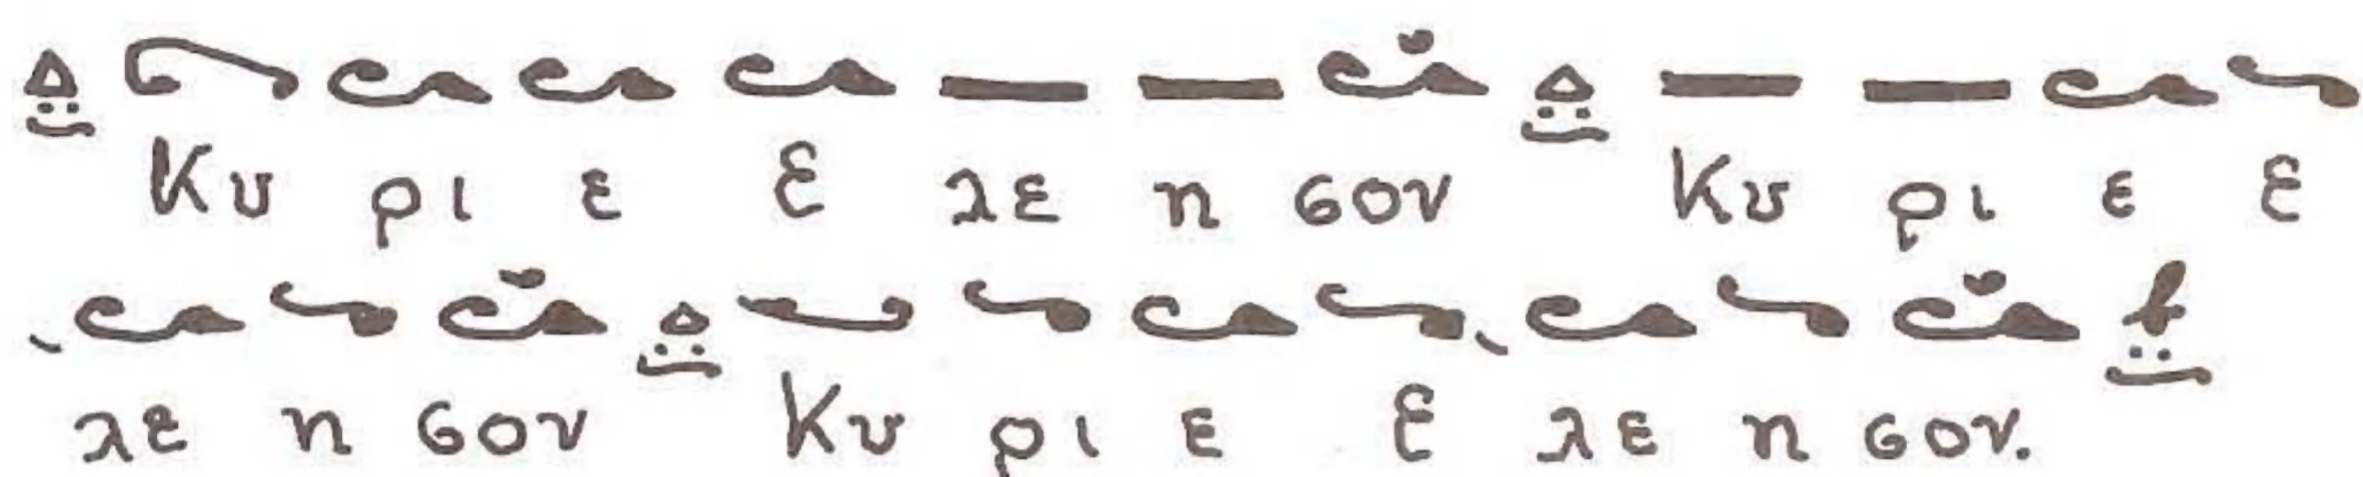 Κυ ρι ε Ε λε η σον Κυ ρι ε Ε
λε η σον Κυ ρι ε Ε λε η σον.